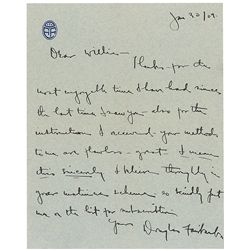 Jan 30/09.
Dear Willie —
Thanks for the
most enjoyable time I have had since
the last time I saw you — also for the
instructions I received your methods
to me are flawless — great. I mean
this sincerely I believe thoroughly in
your scheme, so kindly put
me on the list for subscription
Yours Douglas Fairbanks